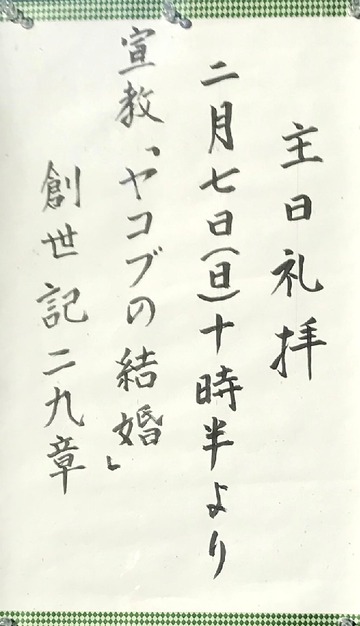 主日礼拝
二月七日(日)十時半より
宣教「ヤコブの結婚」
創世記二九章